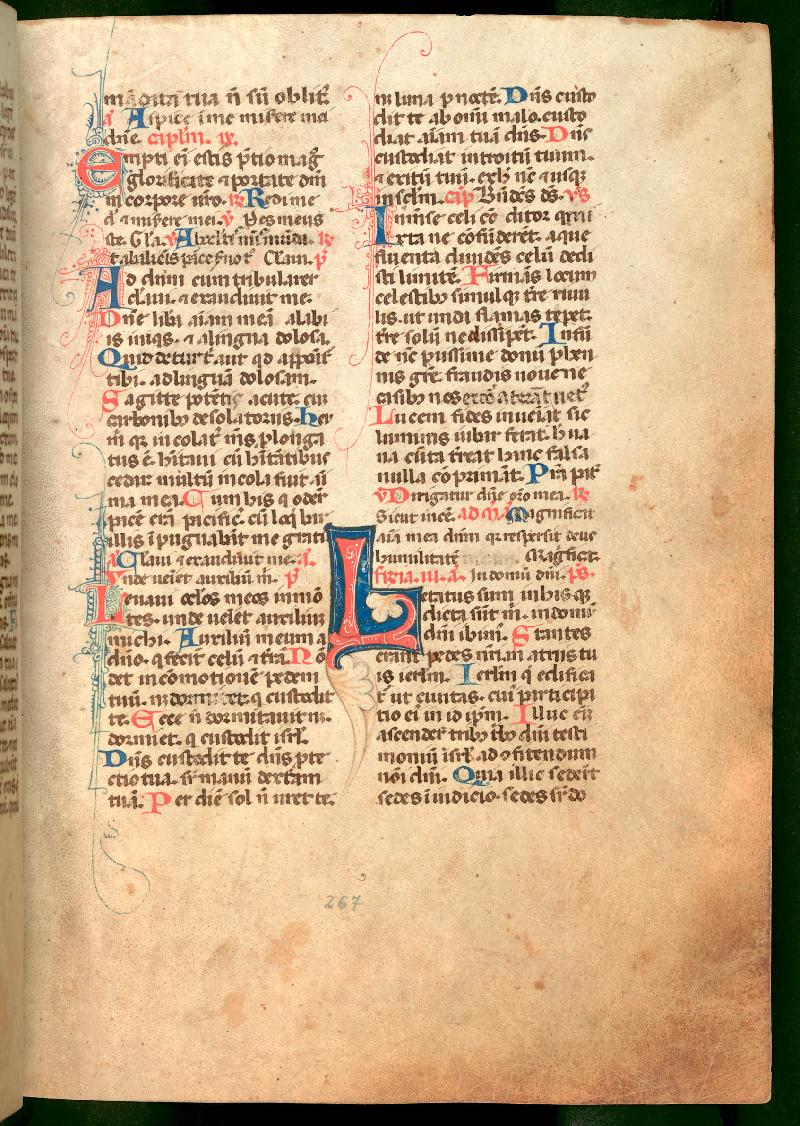 mādata tua n̄ sū oblit᷑.
a᷑ Aspice ī me misere me
dn̄e. cap̄lm. ix.
Empti eī estis p̄tio mag̊
glorificate ⁊ portate dm̄
in corpore vr̄o. R᷑ Redime
v᷑ Pes meus
ste. Gl̄a.
Clam. p̄
Ad dnm̄ cum tribularer
clam. ⁊ exaudiuit me.
Dn̄e liƀa aīam meā a labi
is iniqs. ⁊ a lingua dolosa.
Quid detur t᷑. aut qd̄ appoīt᷑
tibi. ad linguā dolosam.
Sagitte potētis acute. cū
carbonibꝰ desolatoriis. Heu
m̄ qꝛ incolatꝰ mꝰ plonga
tus ē. hītaui cū hītātibus
cedar multū incola fuit āi
ma mea. Cum his q̄ oder̄
pacē erā pacificꝰ. cū loq̄ bar
illis īpugnabāt me gratis
a᷑ Clamaui ⁊ exaudiuit me. a᷑.
Vnde veiet auxiliū m̄. p̄
Leuaui oc̄los meos in mō
tes. vnde veiet auxiliū
michi. Auxiliū meum a
dn̄o. q̄ fecit celū ⁊ t̄rā. Nō
det in comotionē pedem
tuū. n̄ dormitet q̄ custodit
te. Ecce n̄ dormitauit n̄.
dormiet. q̄ custodit isrl̄.
Dn̄s custodit te dn̄s pte
ctio tua. sr̄ manū dextam
tuā. Per diē sol n̄ vret te.
n̄ luna p noctē. Dn̄s custo
dit te ab omī malo. custo
diat aīam tuā dn̄s. Dn̄s
custodiat introitū tuum.
⁊ exitū tuū. ex h̄ nc̄ ⁊ vsqꝫ
in sclm̄. cap̄ Bn̄dcs ds̄. vs
Immse celi cōditor qui mi
xta ne cōfūderēt. aque
fluenta diuidēs celū dedi
sti limitē. Firmās locum
celestibꝰ simulqꝫ t̄re riuu
lis. vt vnda flāmas tēpet.
t̄re solū ne dissipēt. Infū
de nc̄ piissime donū phen
nis gr̄e. fraudis noue ne
casibꝰ nos error atterat vetꝰ.
Lucem fides inueiat sic
luminis iubar ferat. h̄ ua
na cūta t̄reat hanc falsa
nulla cōprimāt. Pr̄a pr̄
v᷑ Dirigatur dn̄e orō mea. R᷑
Sicut incē. ad m̄. Magnificat
aīa mea dnm̄ qꝛ respexit deus
humilitatē Magficat.
feria. iii. a᷑. In domū dn̄i. ps̄.
Letatus sum in his que
dicta sūt m̄. in domū
dn̄i ibimꝰ. Stantes
erant pedes nr̄i. in atriis tu
is ierl̄m. Ierl̄m q̄ edifica
t᷑ vt ciuitas. cuiꝰ participa
tio eiꝰ in id ip̄m. Illuc eī
ascenderūt tribꝰ tbꝰ dn̄i testi
moniū isrl̄. ad ꝯfitendum
noī dn̄i. Quia illic sederūt
sedes ī iudicio. sedes sr̄ do
267